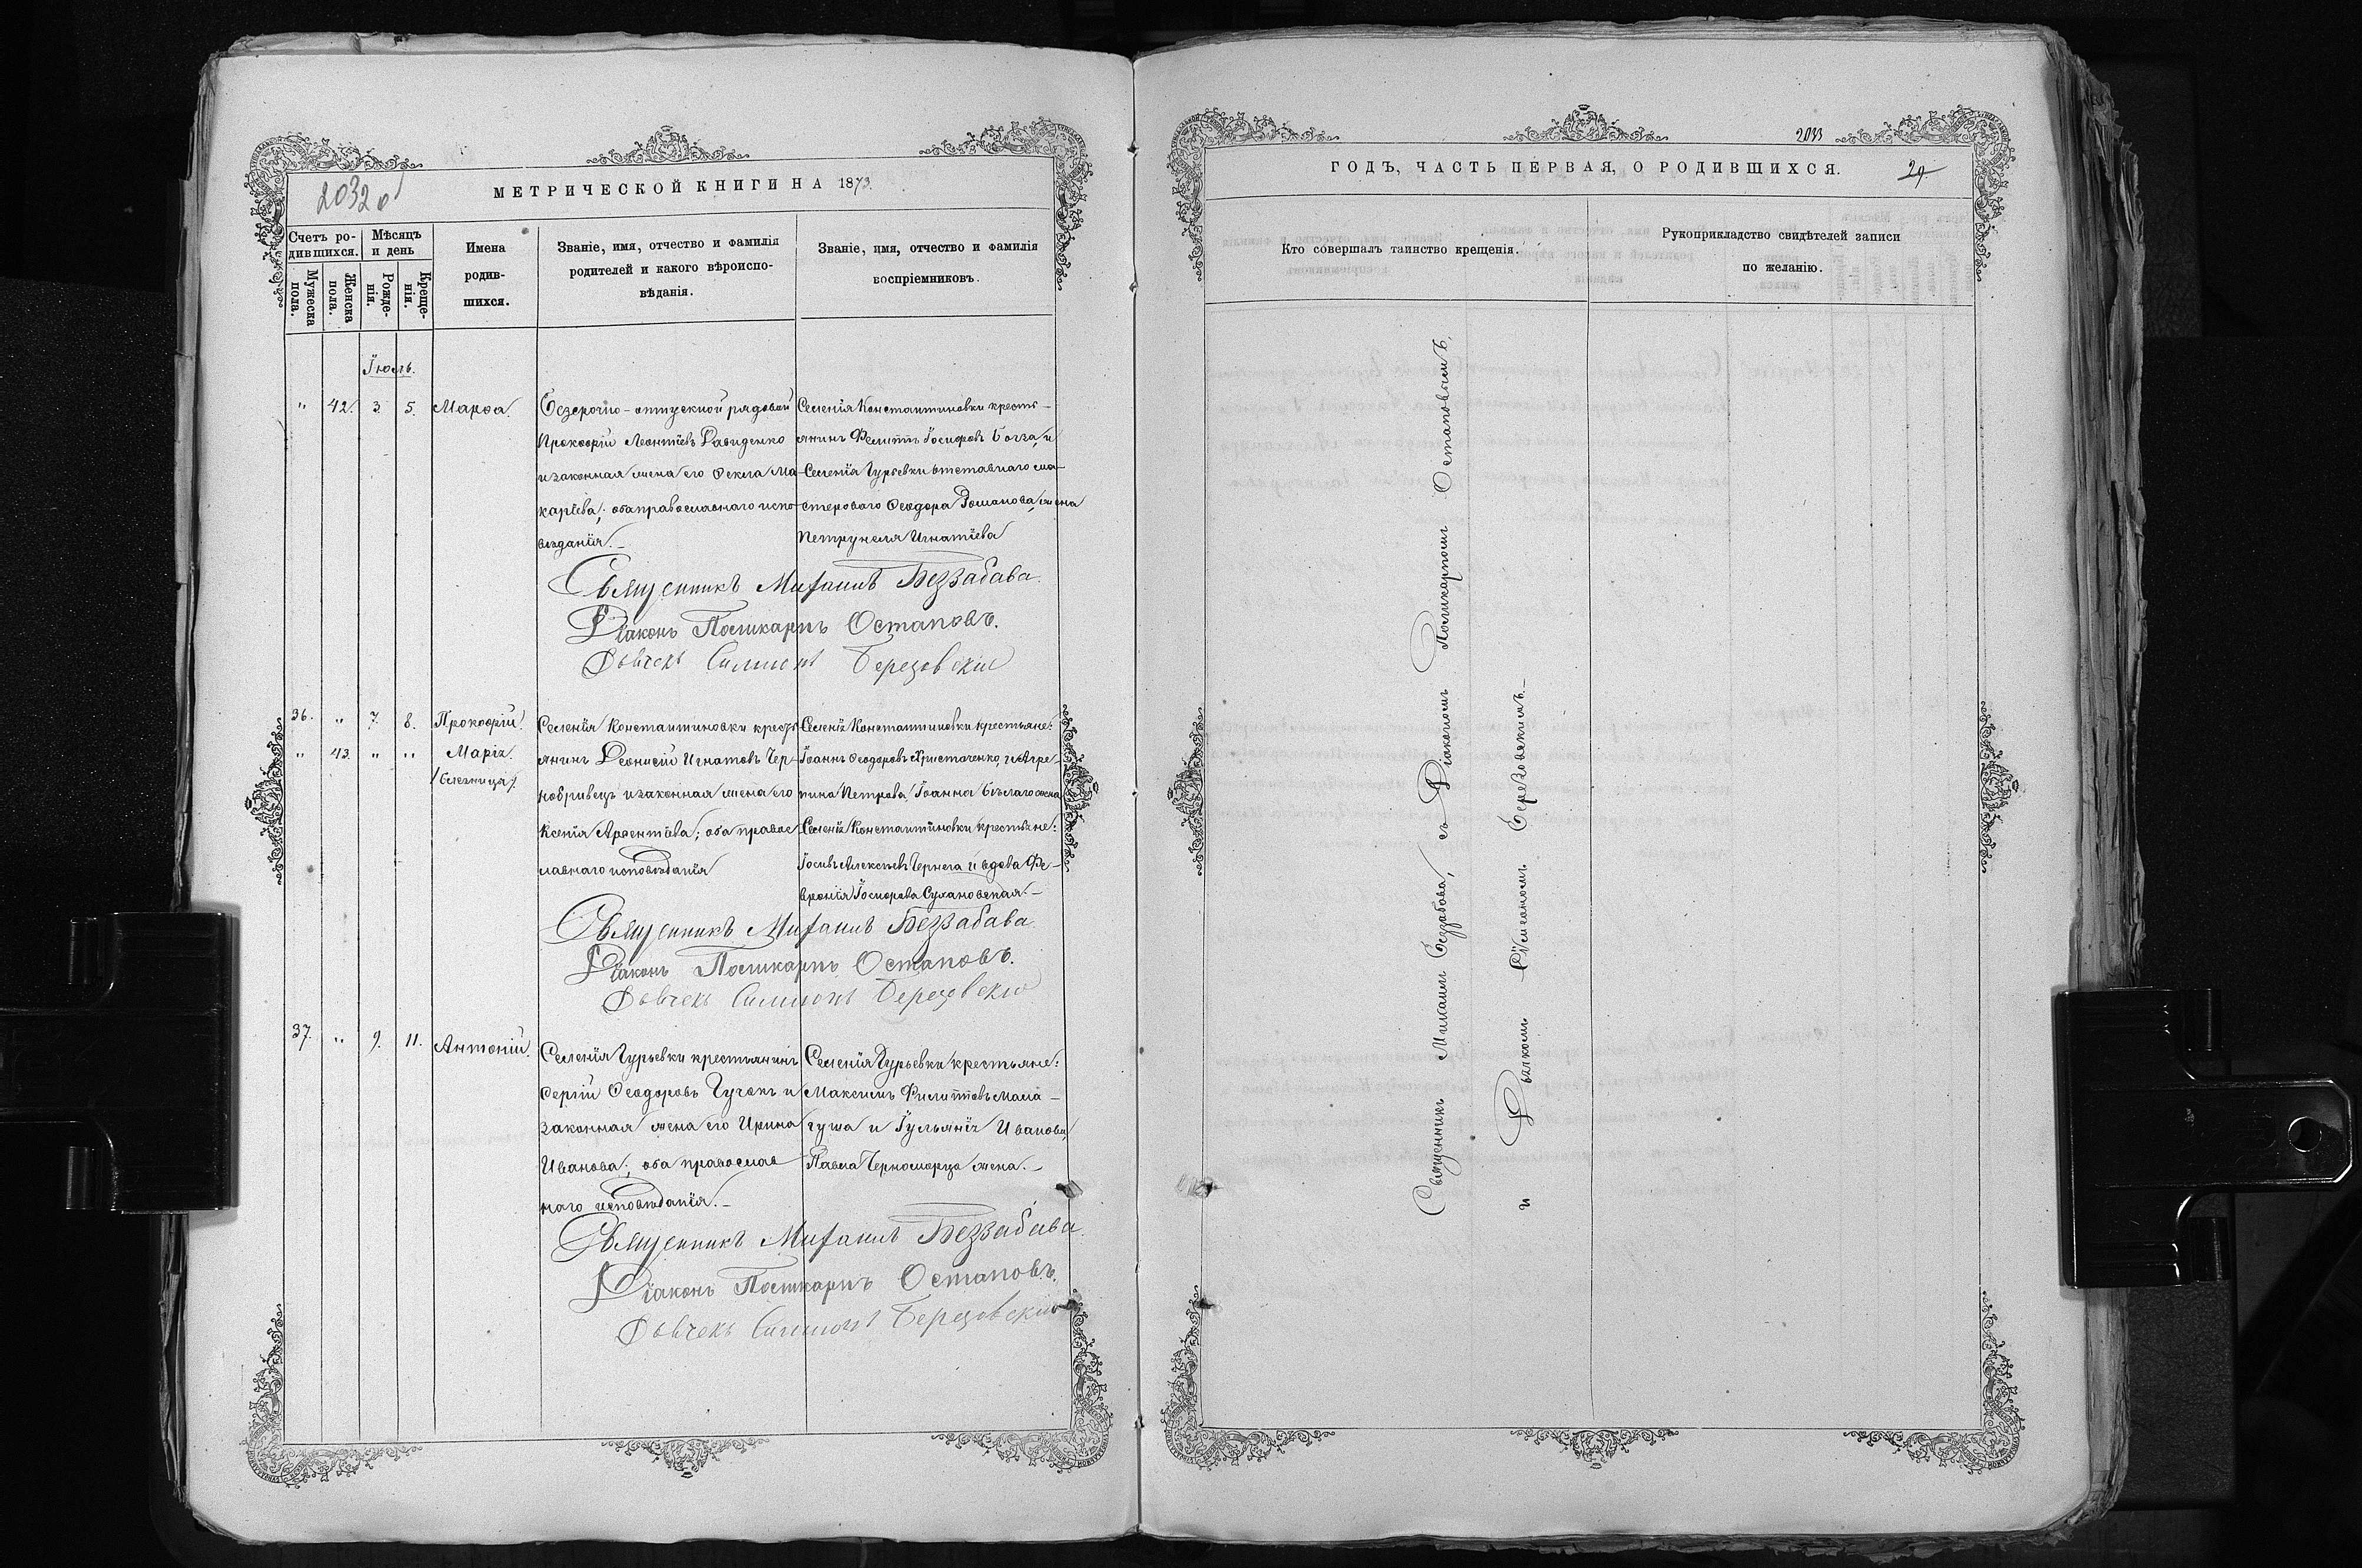 2032 о
МЕТРИЧЕСКОЙ КНИГИ НА 1873.
Счетъ родившихся.
Мѣсяцъ и день
Имена родившихся.
Званіе, имя, отчество и фамилія родителей и какого вѣроисповѣданія.
Званіе, имя, отчество и фамилія воспріемниковъ.
Мужеска пола.
Женска пола.
Рожденія.
Крещенія.
Іюль.
" 42. 3. 5. Марѳа.
Безсрочно-отпускной рядовой
Прокофій Леонтіевъ Давиденко
и законная жена его Ѳекла Ма-
каріева; оба православнаго испо-
вѣданія.
Селенія Константиновки кресть-
янинъ Филиппъ Іосифовъ и
Селенія Гурьевки отставнаго ма-
стероваго Ѳеодора Романова жена
Петрунеля Игнатіева
Священникъ Михаилъ Беззабава.
Діаконъ Поликарпъ Остаповъ.
Дьячекъ Симеонъ Березовскій
36. " 7. 8. Прокофій.
" 43. " " Марія.
/близницы/.
Селенія Константиновки крест
янинъ Діонисій Игнатовъ Чер-
нобривецъ и законная жена его
Ксенія Арсентіева; оба правос
лавнаго исповѣданія
Селенія Константиновки крестьяне:
Іоаннъ Ѳеодоровъ Христаченко, и Агре-
пина Петрова, Іоанна жена
Селенія Константиновки крестьяне:
Іосифъ Алексѣевъ Чернега и вдова Фе-
вронія Іосифова Сухановская.-
Священникъ Михаилъ Беззабава
Діаконъ Поликарпъ Остаповъ.
Дьячекъ Симеонъ Березовскій
37. " 9. 11. Антоній.
Селенія Гурьевки крестьянинъ
Сергій Ѳеодоровъ Гучокъ и
законная жена его Ирина
Иванова; оба православ
наго исповѣданія.-
Селенія Гурьевки крестьяне:
Максимъ Филипповъ Мала-
гуша и Іульянія Иванова,
Павла Черноморца жена.-
Священникъ Михаилъ Беззабава.
Діаконъ Поликарпъ Остаповъ.
Дьячекъ Симеонъ Березовскій
2033
ГОДЪ, ЧАСТЬ ПЕРВАЯ, О РОДИВШИХСЯ.
29.
Кто совершалъ таинство крещенія.
Рукоприкладство свидѣтелей записи
по желанію.
Священникъ Михаилъ Беззабава, съ Діакономъ Поликарпомъ Остаповымъ,
и Дьячкомъ Сѵмеономъ Березовскимъ.-